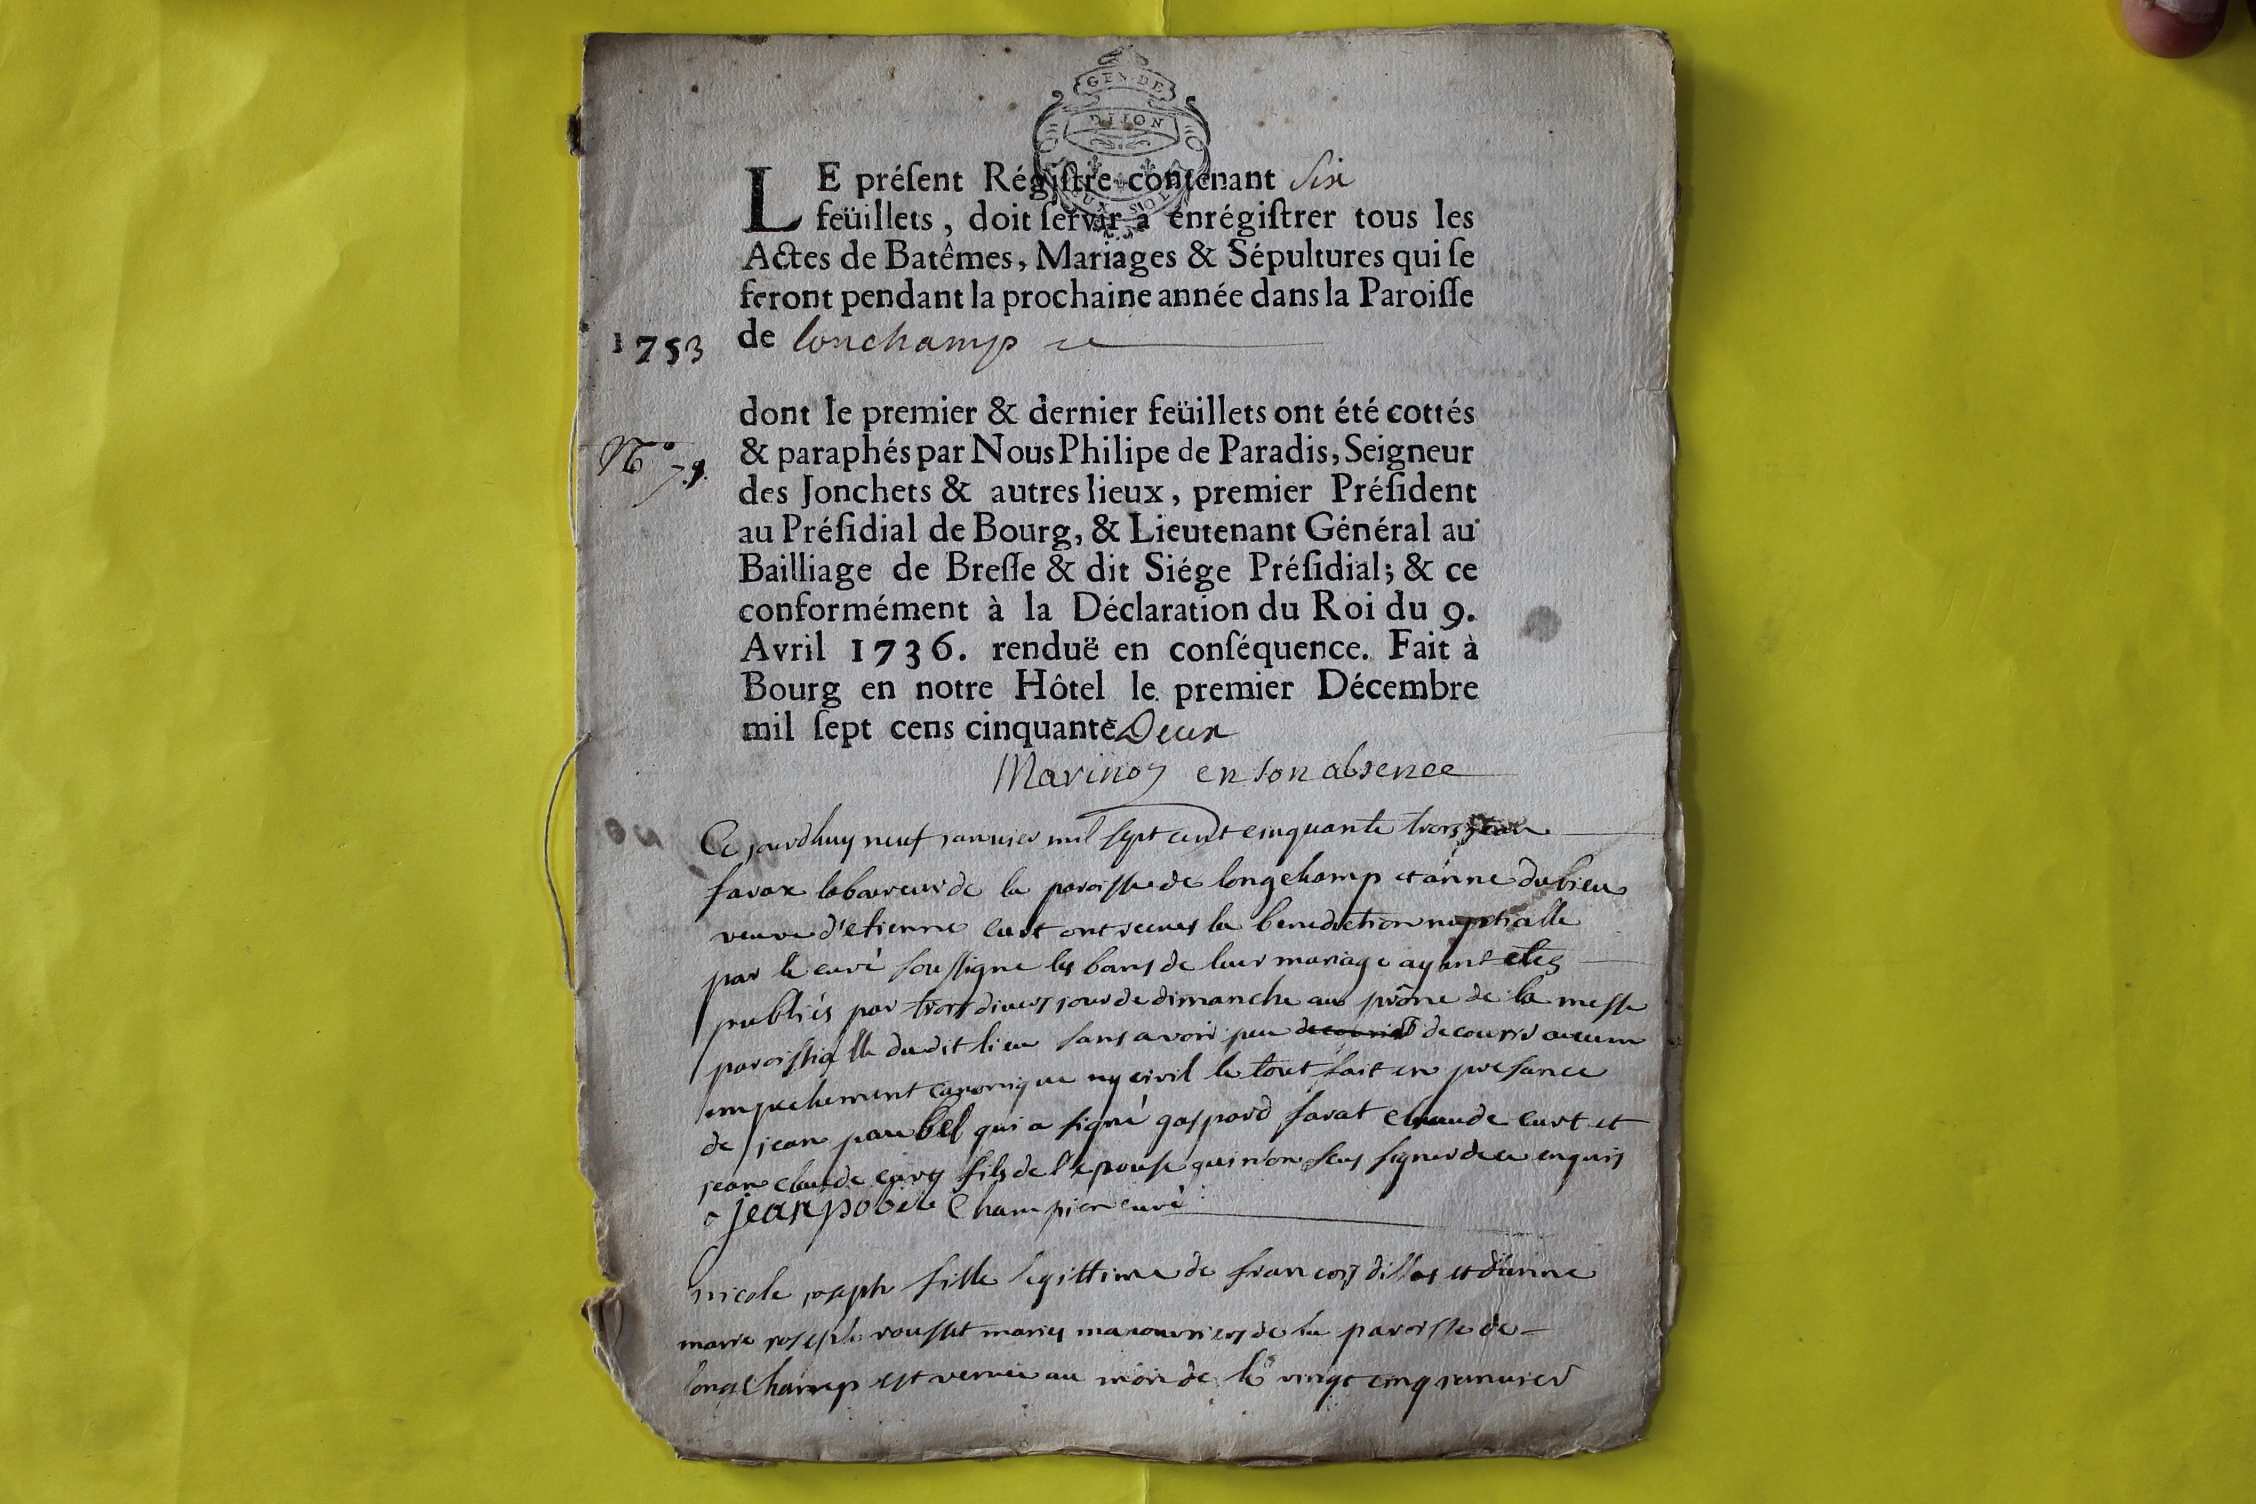 GEN. DE
DIJON
DEUX SOLS
LE préſent Régiſtre contenant Six
feüillets, doit ſervir à enrégiſtrer tous les
Actes de Batêmes, Mariages & Sépultures qui ſe
feront pendant la prochaine année dans la Paroiſſe
1753 de lonchamp
dont le premier & dernier feüillets ont été cottés
N° 79. & paraphés par Nous Philipe de Paradis, Seigneur
des Jonchets & autres lieux, premier Préſident
au Préſidial de Bourg, & Lieutenant Général au
Bailliage de Breſſe & dit Siége Préſidial; & ce
conformément à la Déclaration du Roi du 9.
Avril 1736. renduë en conſéquence. Fait à
Bourg en notre Hôtel le premier Décembre
mil ſept cens cinquante Deux
en son absence
Ce jourdhuy neuf janvier mil sept cent cinquante trois jean
favax laboureur de la paroisse de longchamp et anne dubieu
veuve d'etienne curt ont receus la benediction nuptialle
par le curé soussigne les bans de leur mariage ayant etes
publiés par trois divers jour de dimanche au prône de la messe
paroissialle dudit lieu sans avoir peu decouvrir aucun
empechement canonique ny civil le tout fait en presance
de jean paubel qui a signé gaspard favat claude curt et
jean claude curt fils de l'epouse qui n'on sceu signer de ce enquis
jean pobel Champion curé
nicole joseph fille legittime de françois dillas et d'anne
marie joseph rousset maries manouvriers de la paroisse de
longchamp est venue au monde le vingt cinq janvier